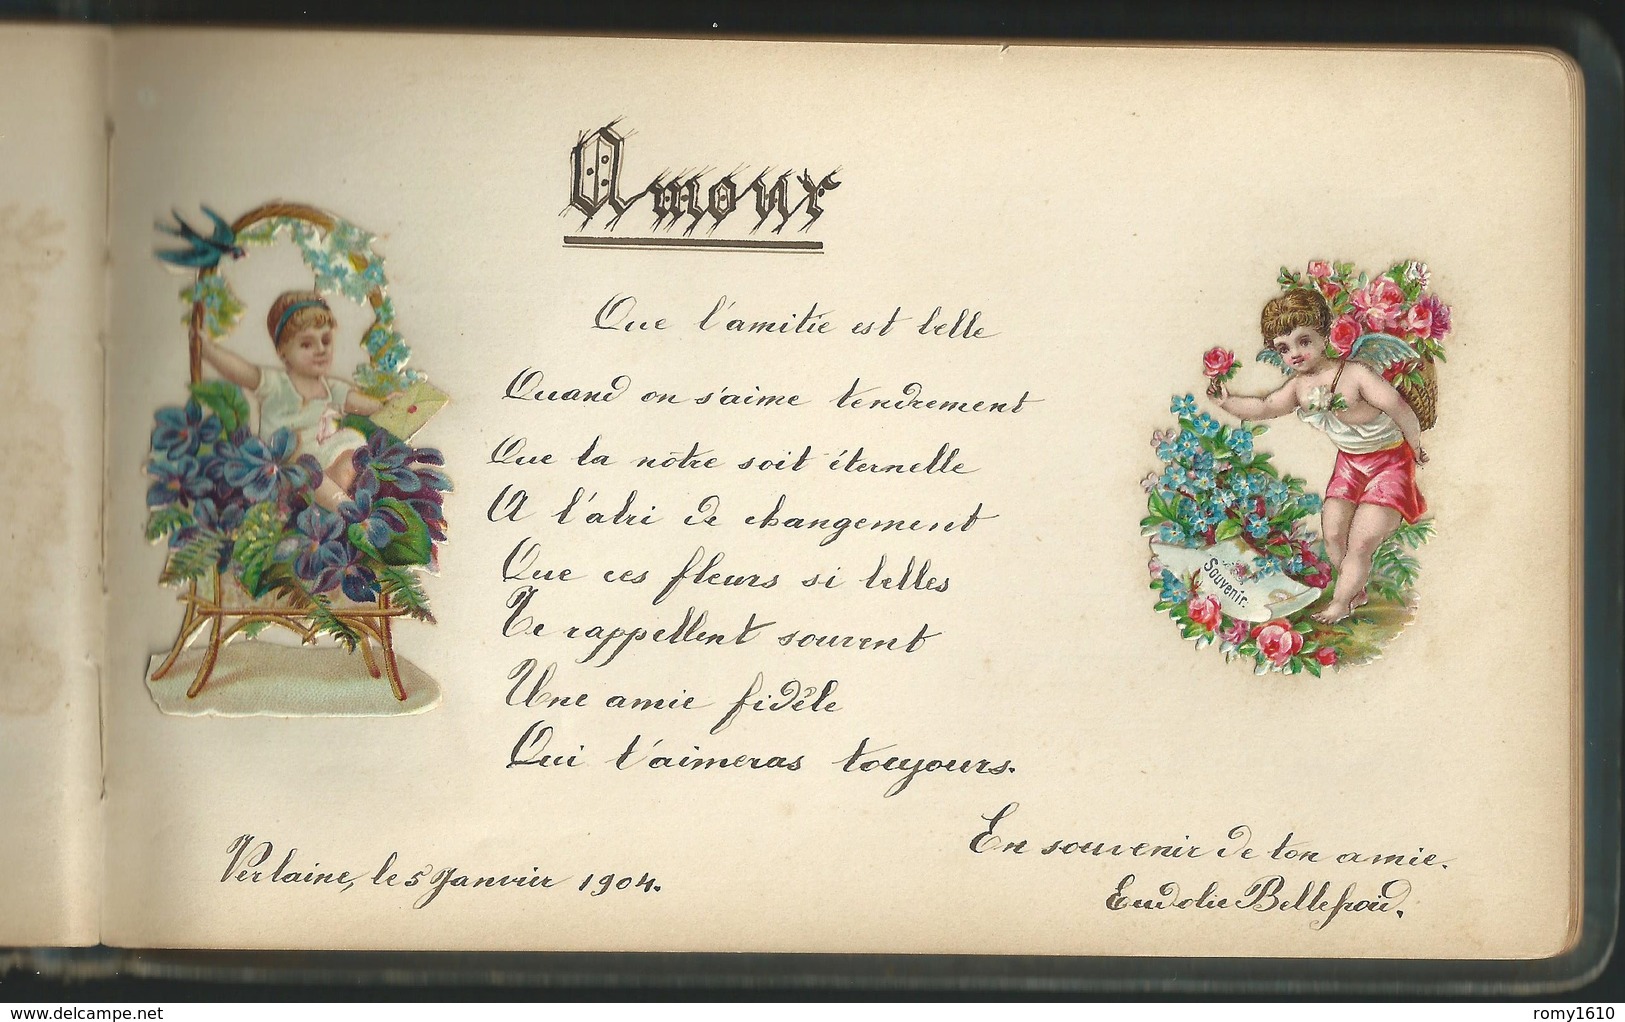 Amour
Que l'amitié est belle
Quand on s'aime tendrement
Que la nôtre soit éternelle
A l'abri de changement
Que ces fleurs si belles
Te rappellent souvent
Une amie fidèle
Qui t'aimeras toujours.
Souvenir.
En souvenir de ton amie.
Verlaine, le 5 Janvier 1904.
Eudolie Bellefroid.
delcampe.net
romy1610